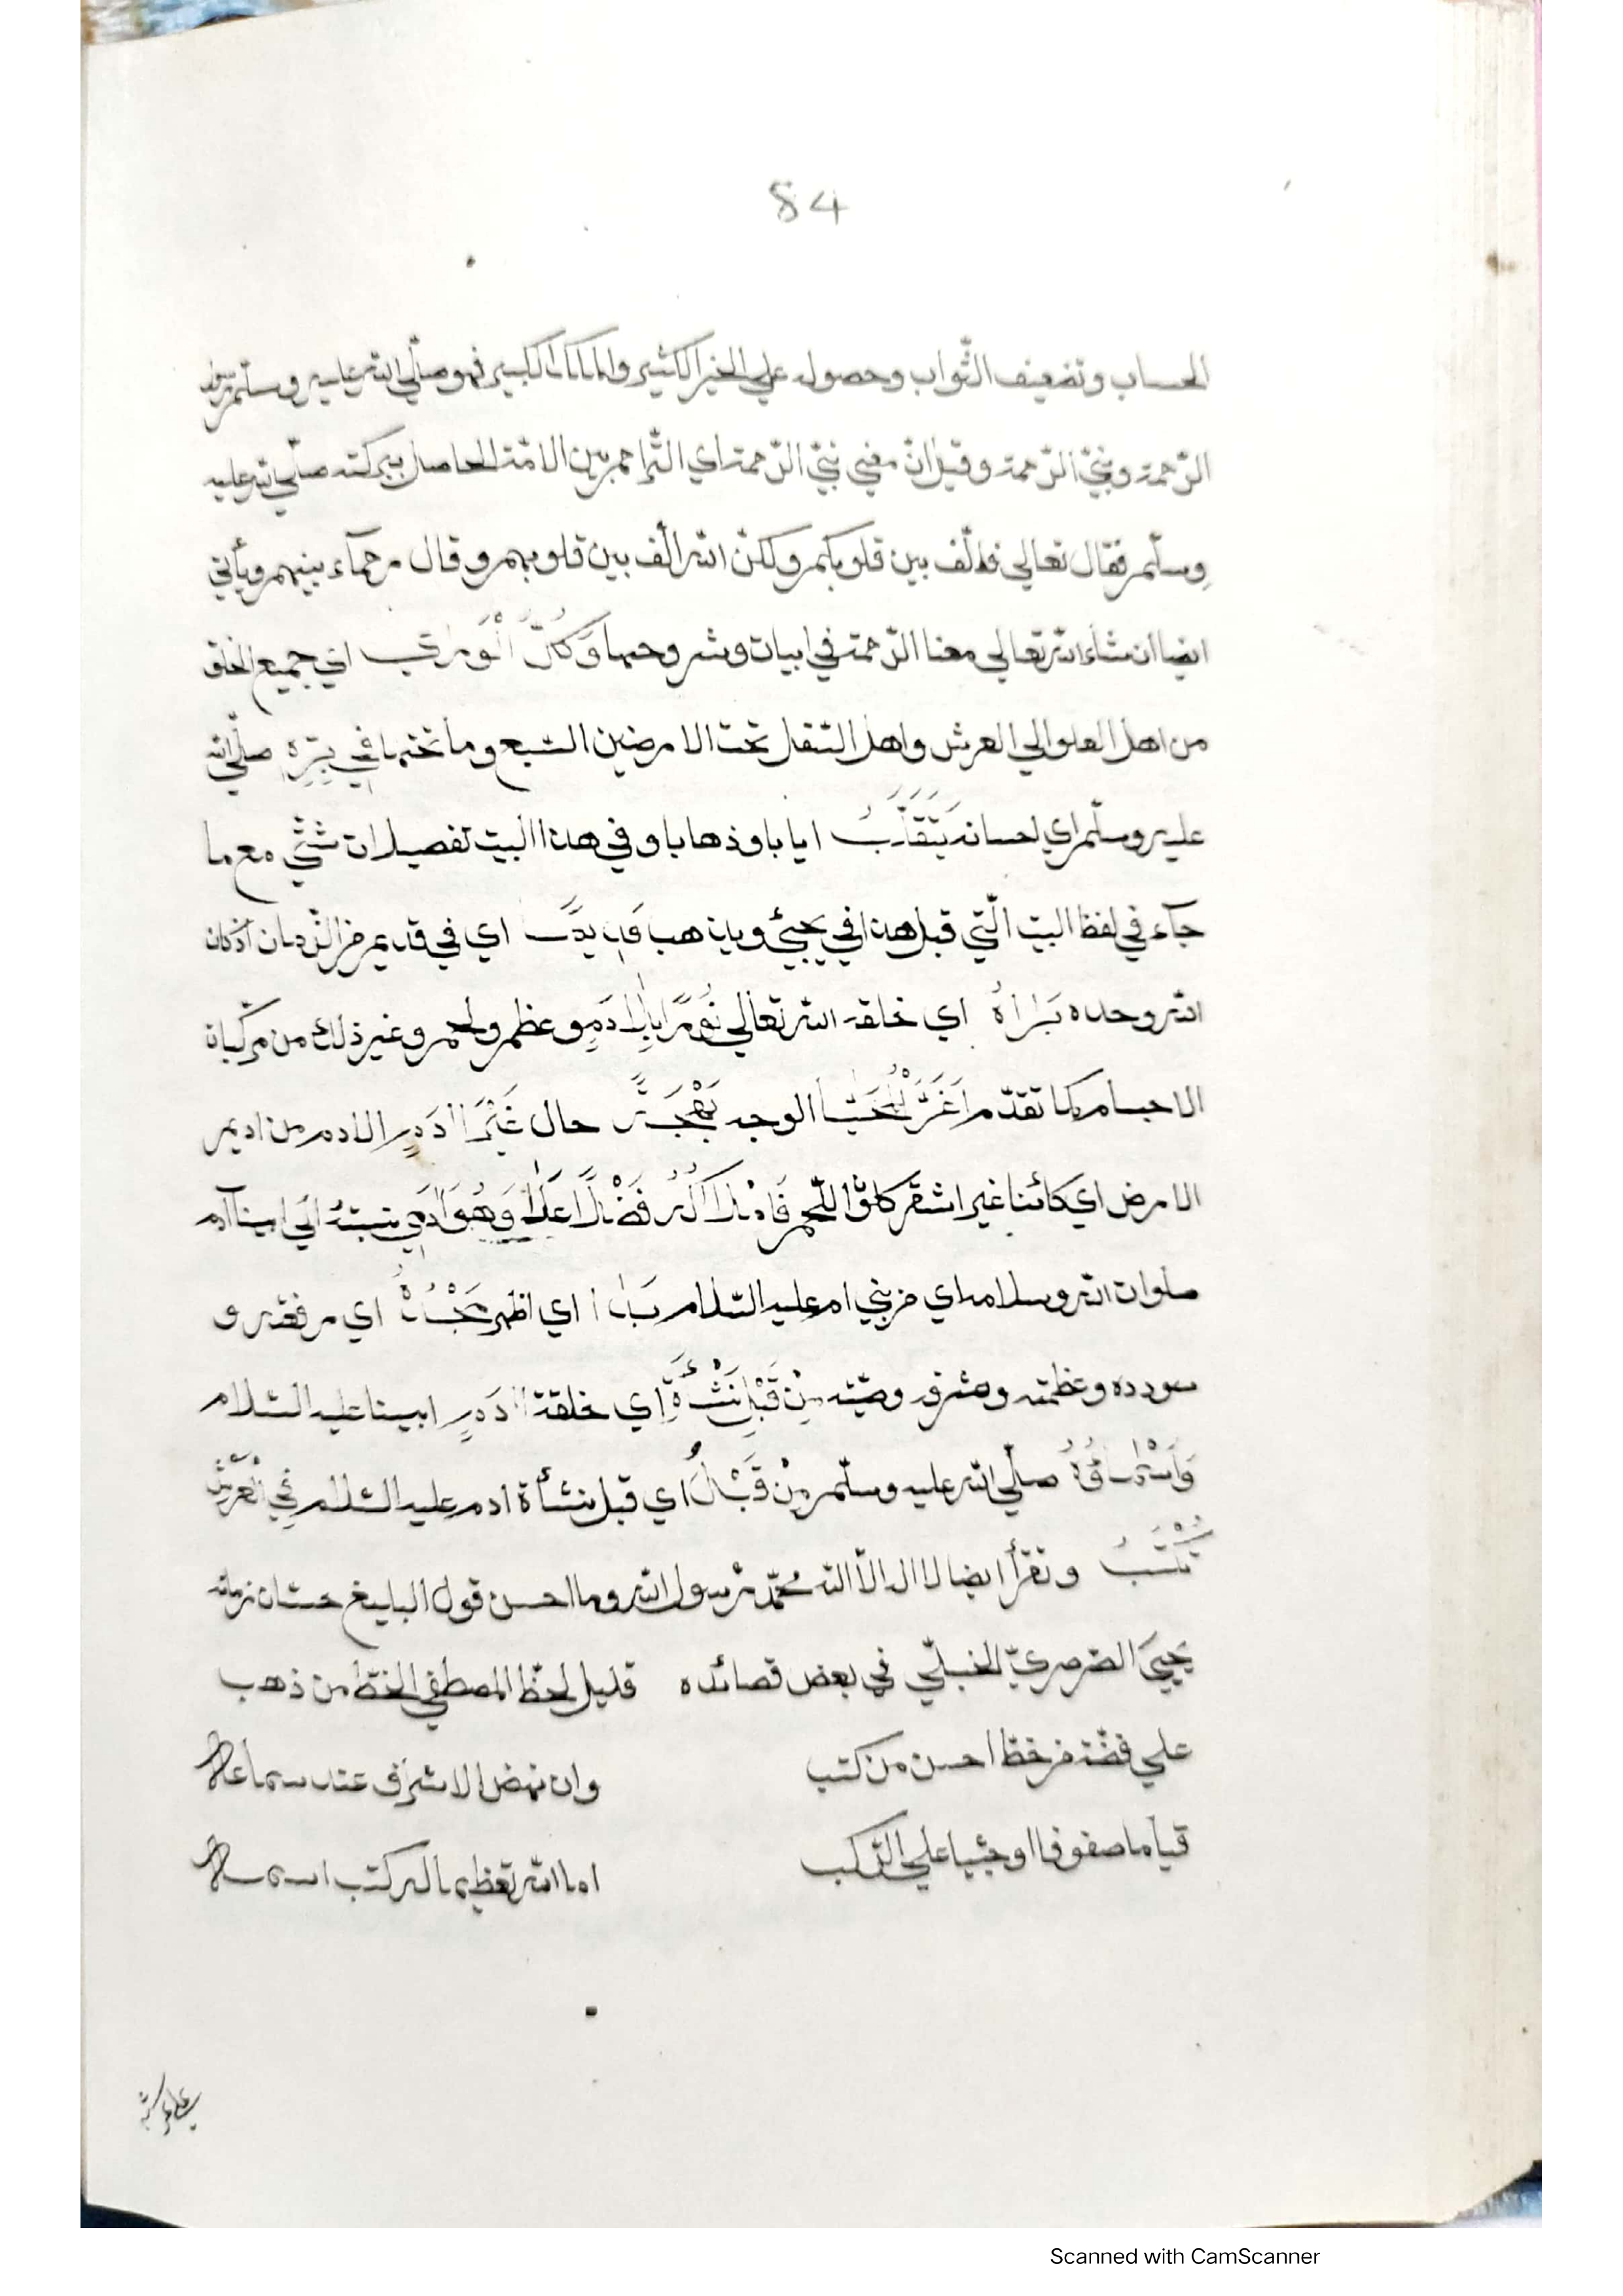 84
الحساب وتضعيف الثّواب وحصوله علي الخير الكثير والملك الكبير فهو صلّي الله عليه وسلّم رسول
الرّحمة ونبيّ الرّحمة وقيل انّ معني نبيّ الرّحمة اي التّراحم بين الامّة الحاصل ببركته صلّي الله عليه
وسلّم فقال تعالي فالّف بين قلوبكم ولكنّ الله الّف بين قلوبهم وقال رحمآء بينهم ويأتي
ايضا ان شاء الله تعالي معنا الرّحمة في ابيات وشروحها وَكُلُّ الْوَرٰي اي جميع الخلق
من اهل العلو الي العرش واهل السّفل تحت الارضين السّبع وما تحتها فِي بِرِّهِ صلّي الله
عليه وسلّم اي احسانه يَتَقَلَّبُ ايابا وذهابا وفي هذا البيت تفصيلات شتّي مع ما
جآء في لفظ البيت الّتي قبل هذا في يجيئ ويذهب قَدِيمًا اي في قديم من الزّمان اذ كان
الله وحده بَرَاهُ اي خلقه الله تعالي نُورًا بِلَا دَمٍ وعظم ولحم وغير ذلك من مركّباة
الاجسام كما تقدّم اَغَرَّ الْمُحَيَّا الوجه بَهْجَةً حال غَيْرَ اٰدَمٍ الادم من اديم
الارض اي كائنا غير اشقر كلون اللّحم فَاٰدَمُ لَا اَكْبَرُ فَضْلًا عَلَا وَهُوَ اٰدَمِي نسبته الي ابينا آدم
صلوات الله وسلامه اي من بني ادم عليه السّلام بَدَا اي اظهر مَجْدُهُ اي رفعته و
سودده وعظمته وشرفه وصيته مِنْ قَبْلِ نَشْأَةِ اي خلقة اٰدَمٍ ابينا عليه السّلام
وَاَسْمَاؤُهُ صلّي الله عليه وسلّم مِنْ قَبْلُ اي قبل نشأة ادم عليه السّلام فِي الْعَرْشِ
تُكْتَبُ وتقرأ ايضا لا اله الّا الله محمّد رسول الله وما احسن قول البليغ حسّان زمانه
يحيَي الصّرصريّ الحنبليّ في بعض قصائده قليل لحظّ المصطفي الخطّ من ذهب
علي فضّة من خطّ احسن من كتب وان نهض الاشراف عند سماعه
قياما صفوفا او جثيا علي الرّكب اما الله تعظيما له كتب اسمه
علي عرشه